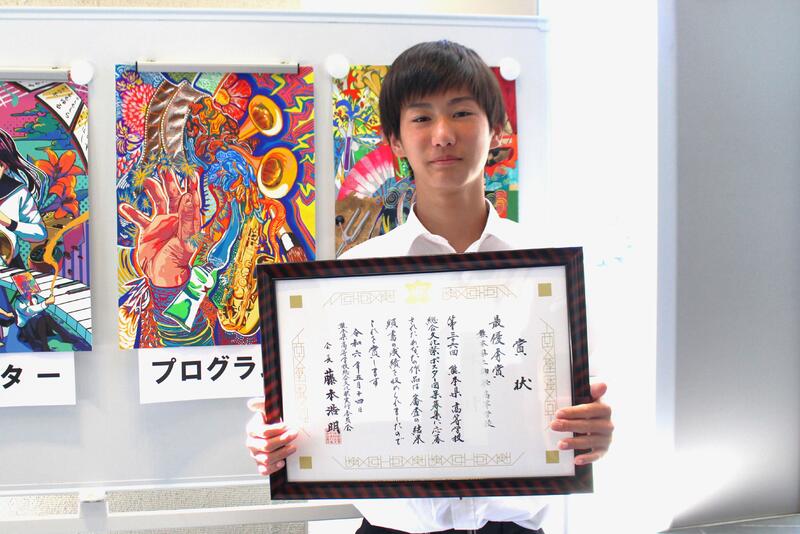 ター
プログラ
賞状
最優秀賞
熊本県立
高等学校
第三十六回 熊本県高等学校
総合文化祭ポスター図案募集に応募
されたあなたの作品は審査の結果
頭書の成績を収められましたので
これを賞します
令和六年五月十四日
熊本県高等学校総合文化祭実行委員会
会長 藤本浩明